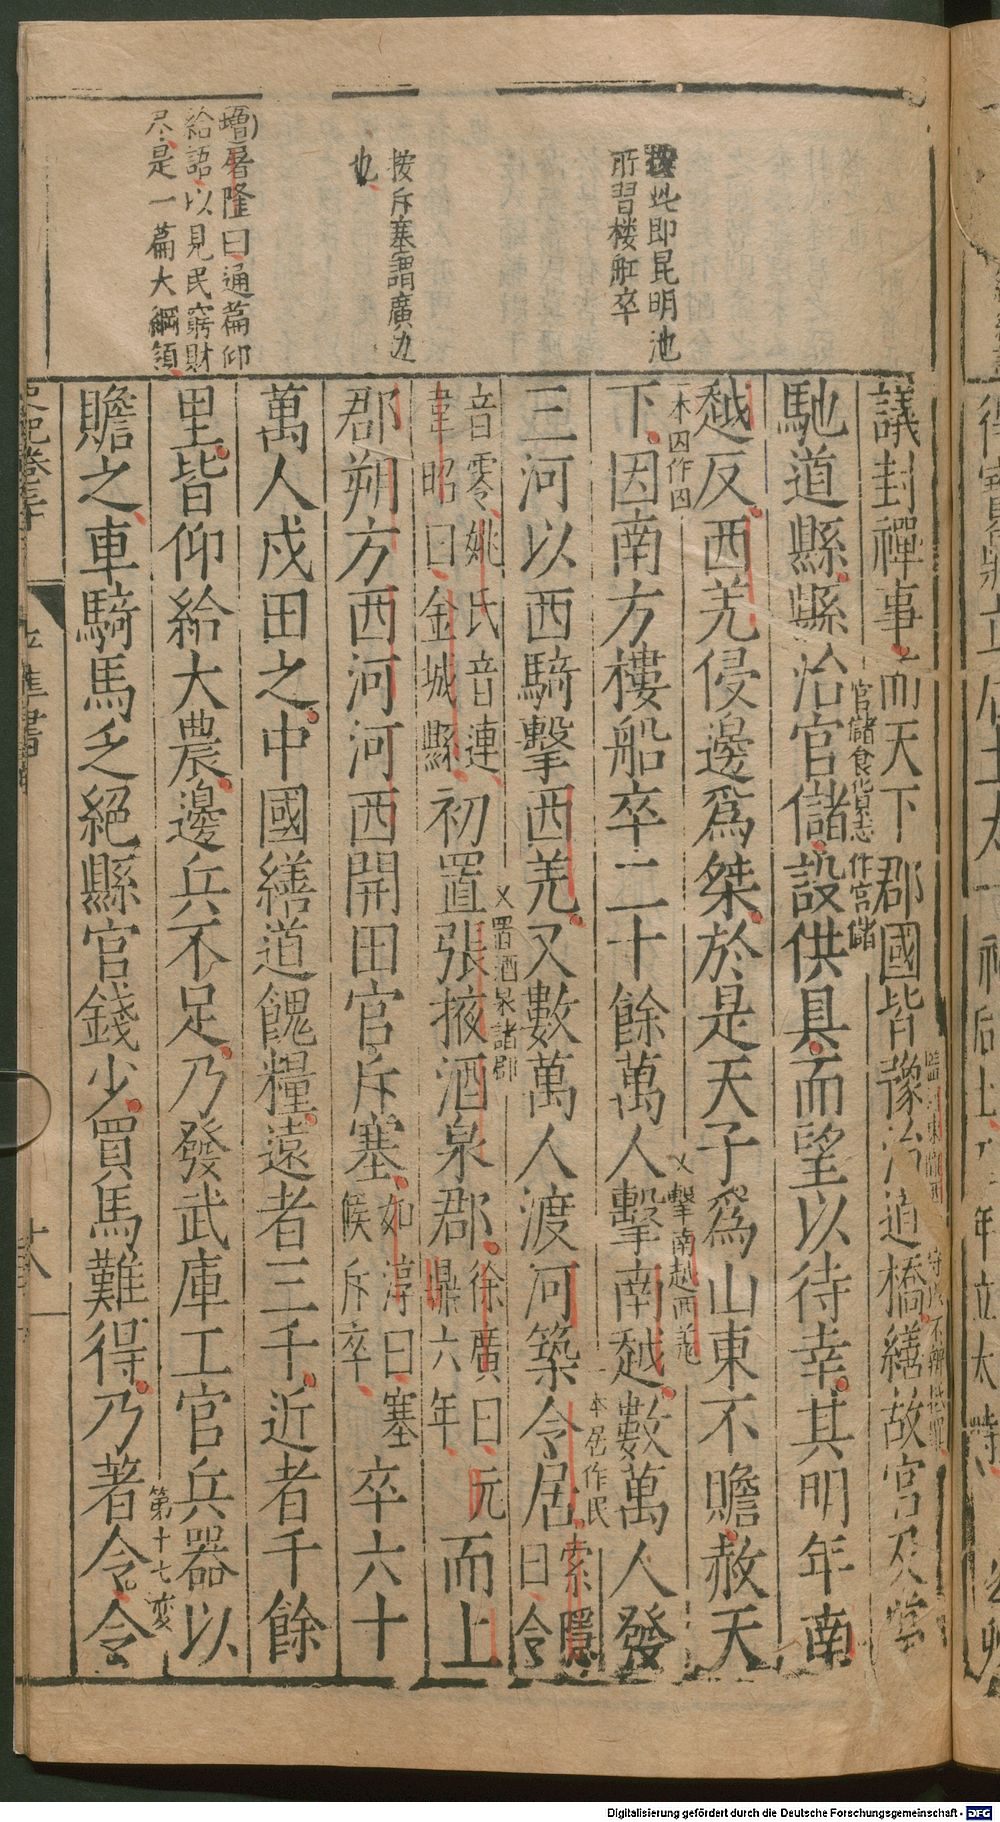 按此即昆明池
所習楼舡卒
按斥塞謂廣边
也
增屠隆曰通篇仰
給語以見民窮財
尽是一篇大綱領
議封禪事而天下郡國皆豫治道橋繕故宮及當
馳道縣縣治官儲設供具而望以待幸其明年南
官儲食貨志作宮儲
越反西羌侵邊爲桀於是天子爲山東不贍赦天
下因南方樓船卒二十餘萬人擊南越數萬人發
一本因作囚
擊南越西羌
三河以西騎擊西羌又數萬人渡河築令居索隱曰令
本居作民
音零姚氏音連韋昭曰金城縣初置張掖酒泉郡徐廣曰元鼎六年而上
置酒泉諸郡
郡朔方西河河西開田官斥塞如淳曰塞候斥卒卒六十
萬人戍田之中國繕道餽糧遠者三千近者千餘
里皆仰給大農邊兵不足乃發武庫工官兵器以
贍之車騎馬乏絕縣官錢少買馬難得乃著令令
第十七変
史記卷三十
平準書
Digitalisierung gefördert durch die Deutsche Forschungsgemeinschaft - DFG